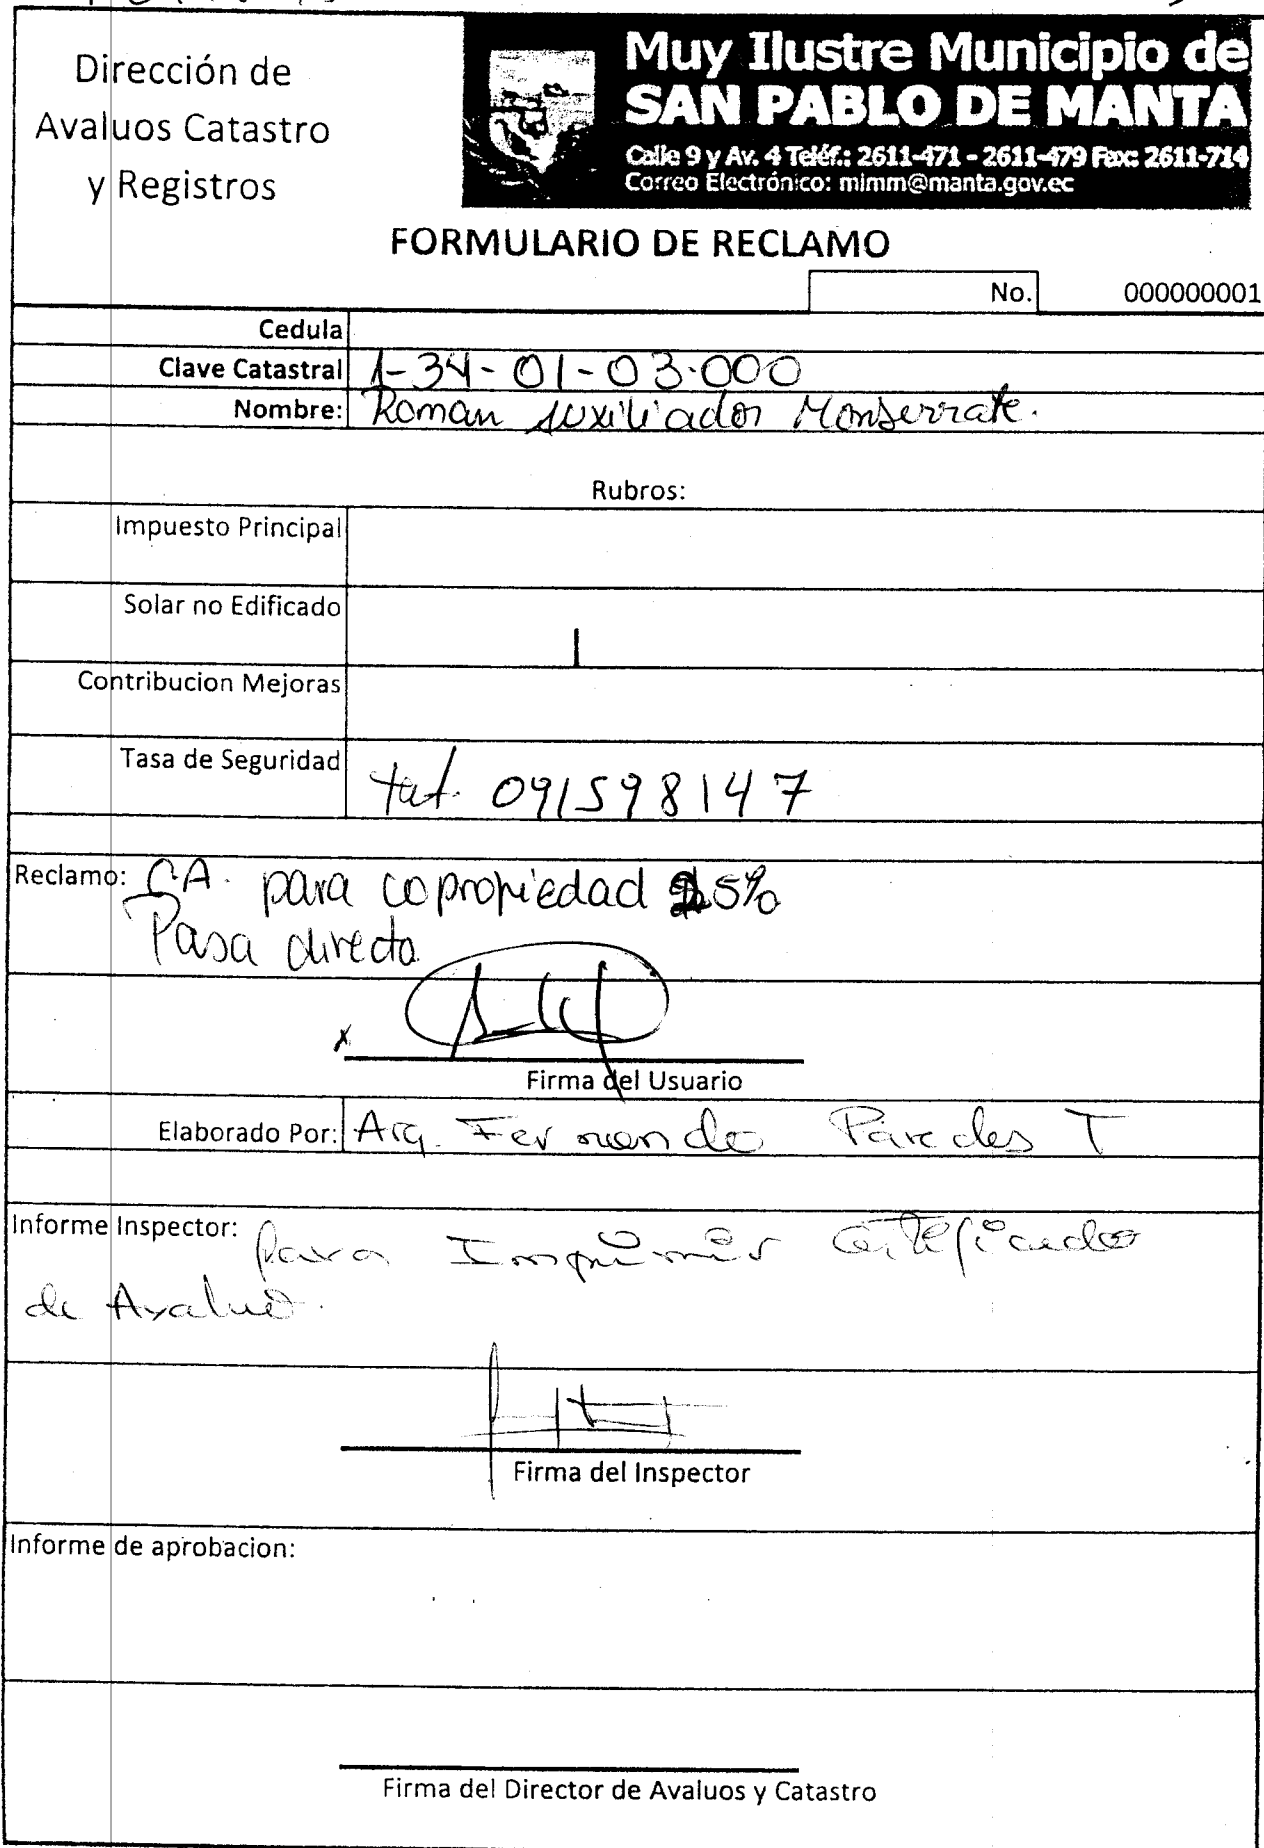 Dirección de
Avaluos Catastro
y Registros
Muy Ilustre Municipio de
SAN PABLO DE MANTA
Calle 9 y Av. 4 Teléf.: 2611-471 - 2611-479 Fax: 2611-714
Correo Electrónico: mimm@manta.gov.ec
FORMULARIO DE RECLAMO
No. 000000001
Cedula
Clave Catastral 1-34-01-03-000
Nombre: Roman Auxiliador Monserrate.
Rubros:
Impuesto Principal
Solar no Edificado
Contribucion Mejoras
Tasa de Seguridad
091598147
Reclamo: CA. para copropiedad 5%
Pasa directo
Firma del Usuario
Elaborado Por: Arq. Fernando Paredes T
Informe Inspector: para Imprimir Certificado
de Avaluo.
Firma del Inspector
Informe de aprobacion:
Firma del Director de Avaluos y Catastro